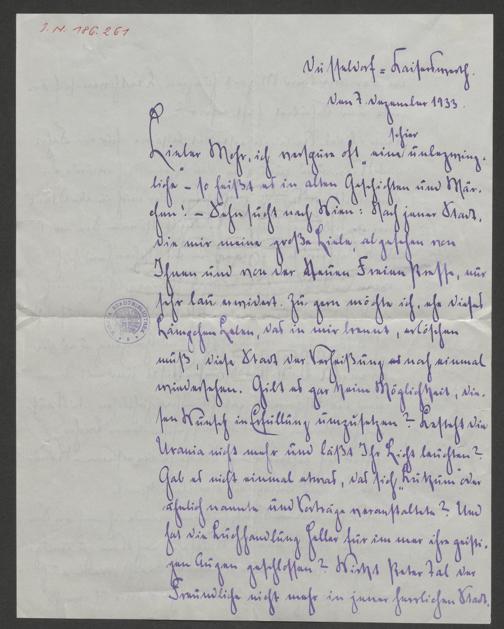 J. N. 186.261
Düsseldorf = Kaiserswerth.
den 7. Dezember 1933.
Lieber Mohr, ich verspüre oft „eine schier unbezwing-
liche“ – so heißt es in alten Geschichten und Mär-
chen! – Sehnsucht nach Wien: Nach jener Stadt,
die mir meine große Liebe, abgesehen von
Ihnen und von der Neuen Freien Presse, nur
sehr lau erwidert. Zu gern möchte ich, ehe dieses
Lämpchen Leben, das in mir brennt, erlöschen
muß, diese Stadt der Verheißung noch einmal
wiedersehen. Gibt es gar keine Möglichkeit, die-
sen Wunsch in Erfüllung umzusetzen? Besteht die
Urania nicht mehr und läßt Ihr Licht leuchten?
Gab es nicht einmal etwas, das sich oder
ähnlich nannte und Vorträge veranstaltete? Und
hat die Buchhandlung Heller für immer ihre geisti-
gen Augen geschlossen? Wirkt Peter Tal der
Freundliche nicht mehr in jener herrlichen Stadt,